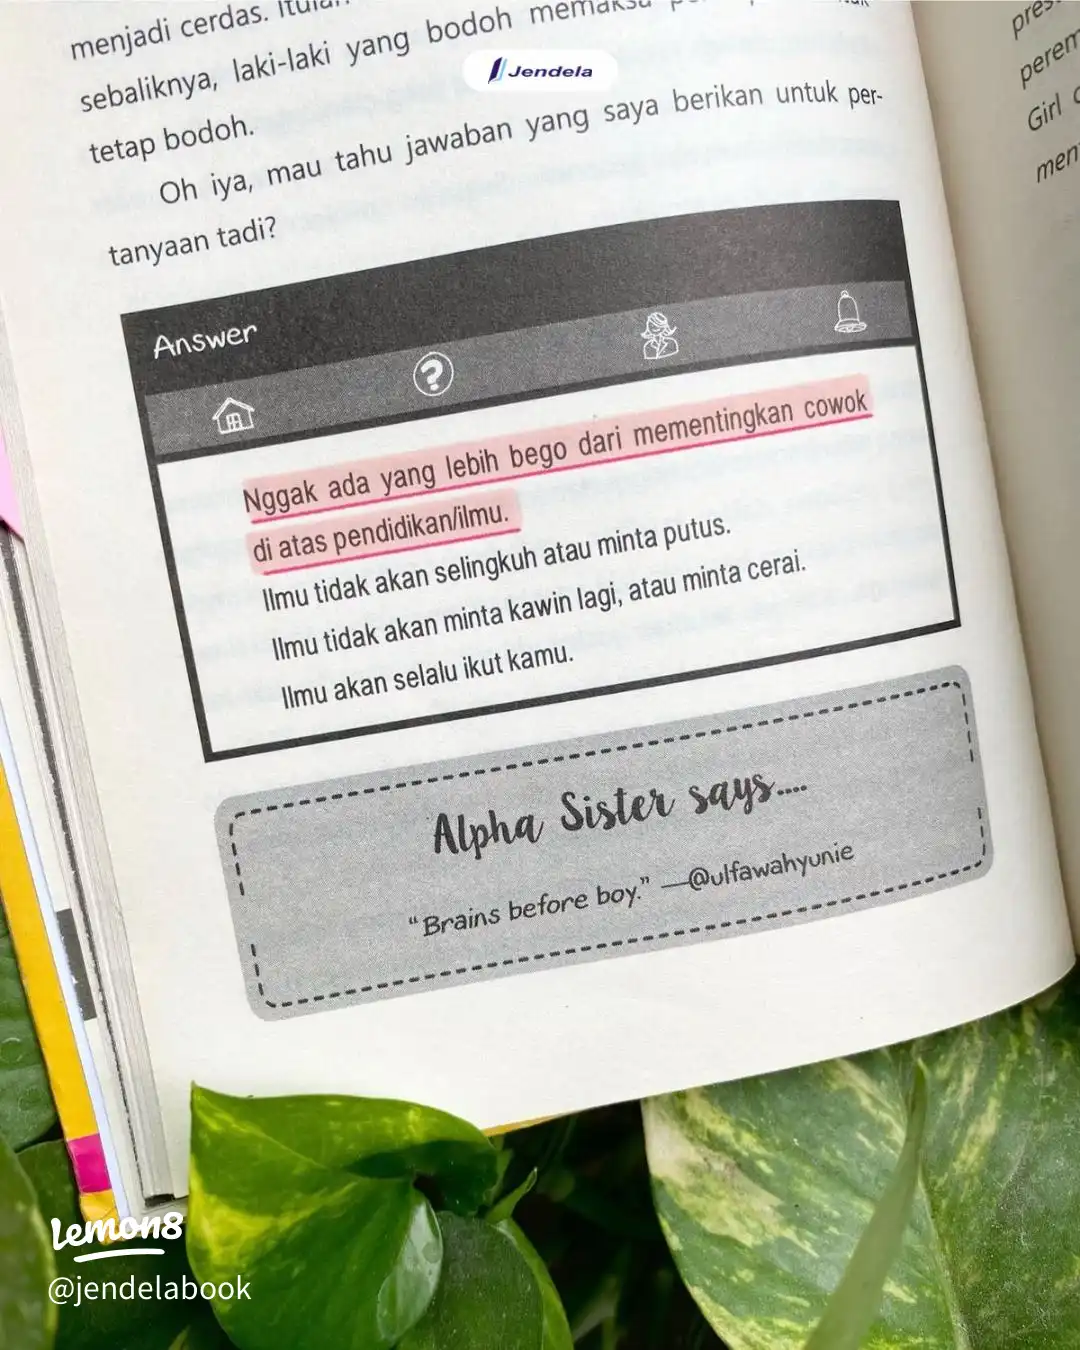 menjadi cerdas.
sebaliknya, laki-laki yang bodoh
tetap bodoh.
Jendela
Oh iya, mau tahu jawaban yang saya berikan untuk per-
tanyaan tadi?
Answer
?
Nggak ada yang lebih bego dari mementingkan cowok
di atas pendidikan/ilmu.
Ilmu tidak akan selingkuh atau minta putus.
Ilmu tidak akan minta kawin lagi, atau minta cerai.
Ilmu akan selalu ikut kamu.
Alpha Sister says....
“Brains before boy.” —@ulfawahyunie
Girl
Lemon8
@jendelabook